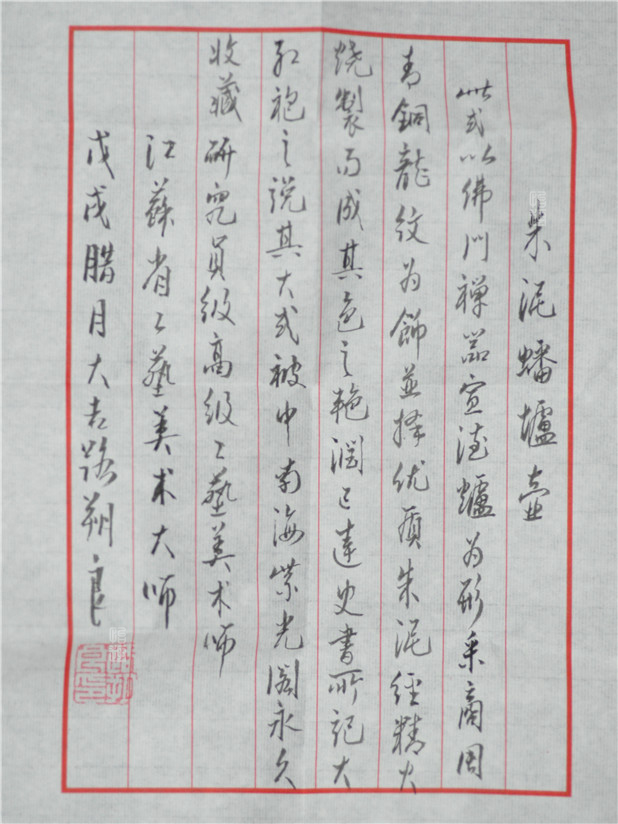 朱泥蟠壚壶
此式以佛门禅器宣德爐为形秉商周
青銅龍纹为飾並择优质朱泥经精火
烧製而成其色之艳润已达史書所记大
红袍之说其大式被中南海紫光阁永久
收藏研究員级高级工藝美术师
江蘇省工藝美术大师
戊戌腊月大吉路朔良